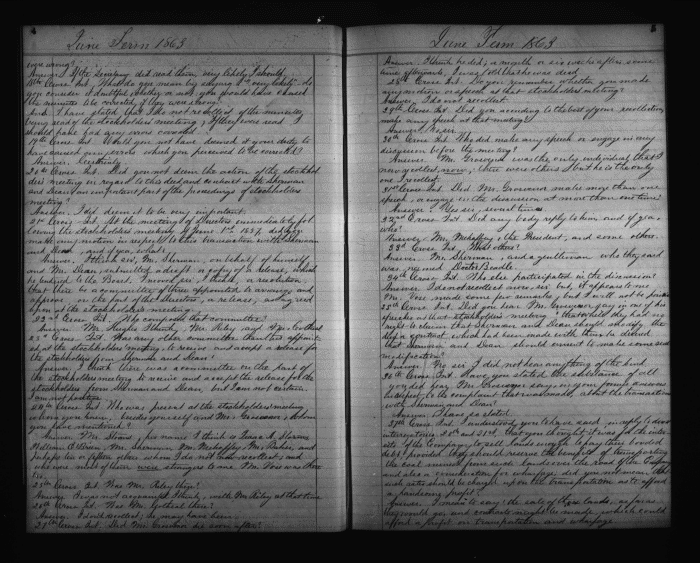 June Term 1863
were wrong?
Answer. If the Company did and them, very likely I should.
18th Cross Int. What do you mean by saying it "very likely" do
you consider it doubtful whether or not you should have caused
the minutes to be corrected, if they were wrong?
Ans. I have stated that I do not recollect of the minutes
being read of the stockholders meeting; if they were read I
should have had any errors corrected.
19th Cross Int. Would you not have deemed it your duty to
have caused any errors which you perceived to be corrected?
Answer. Certainly.
20th Cross Int. Did you not deem the action of the stockhol
ders meeting in regard to this deed and contract with Sherman
and Dean an important part of the proceedings of stockholders
meeting?
Answer. I did deem it to be very important.
21st Cross Int. At the meeting of Directors immediately fol
lowing the stockholders meeting of June 1st 1857, did you
make any motion in respect to this transaction with Sherman
and Dean, and if yea, what?
Answer. I think sir, Mr. Sherman, on behalf of himself
and Mr. Dean, submitted a draft, a copy of a release, which
he handed to the Board. I moved sir, I think, a resolution,
that there be a committee of three appointed to examine, and
approve, on the part of the Directors, a release, as agreed
upon at the stockholders meeting.
22nd Cross Int. Who composed that committee?
Answer. Mr. Hughes I think, Mr. Riley and Mr.
23rd Cross Int. Was any other committee than this appoint
ed, at the stockholders meeting to receive and accept a release for
the stockholders from Sherman and Dean?
Answer. I think there was a committee on the part of
the stockholders meeting to receive and accept the release for the
stockholders from Sherman and Dean, but I am not certain.
I am not positive.
24th Cross Int. Who was present at the stockholders meeting
whom you knew, besides yourself and Mr. Grosvenor, whom
you have mentioned?
Answer. Mr. Stearns, his name I think is Isaac A. Stearns
William Mr. Sherman, Mr. Mehaffey, Mr. Baker, and
perhaps two or three other men. I do not now recollect; and
who were most of them were strangers to me. Mr. Vose was there
too.
25th Cross Int. Was Mr. Riley there?
Answer. I was not acquainted I think, with Mr. Riley at that time
26th Cross Int. Was Mr. Gotheal there?
Answer. I don't recollect; he may have been.
27th Cross Int. Did Mr. Grosvenor die soon after?
June Term 1863
Answer. I think he did; a month or six weeks after, some
time afterwards, I was told that he was dead.
28th Cross Int. Do you remember whether you made
any motion or speech at that stockholders meeting?
Answer. I do not recollect.
29th Cross Int. Did you according to the best of your recollection,
make any speech at that meeting?
Answer. No sir.
30th Cross Int. Who did make any speech or engage in any
discussion before the meeting?
Answer. Mr. Grosvenor was the only individual that I
now recollect, now; there were others I but he is the only
one I recollect.
31st Cross Int. Did Mr. Grosvenor make more than one
speech, or engage in the discussion, at more than one time?
Answer. Yes sir, several times.
32nd Cross Int. Did any body reply to him and if yea,
who?
Answer. Mr. Mehaffey, the President, and some others.
33rd Cross Int. What others?
Answer. Mr. Sherman, and a gentleman who they said
was named Doctor Beadle.
34th Cross Int. Who else participated in the discussion?
Answer. I do not recollect now sir but, it appears to me
Mr. Vose made some few remarks, but I will not be positive
35th Cross Int. Did you hear Mr. Grosvenor say in one of his
speeches at that stockholders meeting "that while they had no
right to claim that Sherman and Dean should modify the
a contract which had been made with them, he desired
that Sherman and Dean should consent to make some such
modification?"
Answer. No sir I did not hear anything of the kind.
36th Cross Int. Have you stated the substance of all
you did hear Mr. Grosvenor say, in your former answers
in respect to the complaint that was made, about the transaction
with Sherman and Dean?
Answer. I have so stated.
37th Cross Int. I understood you to have said in reply to direct
interrogatories 20th and 21st that you thought it was for the inter
ests of the Company to sell lands enough to pay their bonded
debt, provided they should reserve the benefits of transporting
the coal mined from such lands over the road of the Company
and also a consideration for wharfage, did you not mean that
such rates should be charged upon the transportation as to afford
a handsome profit?
Answer. I mean to say, the sale of these lands, as far as
they could go, and contracts might be made, which could
afford a profit on transportation and wharfage.